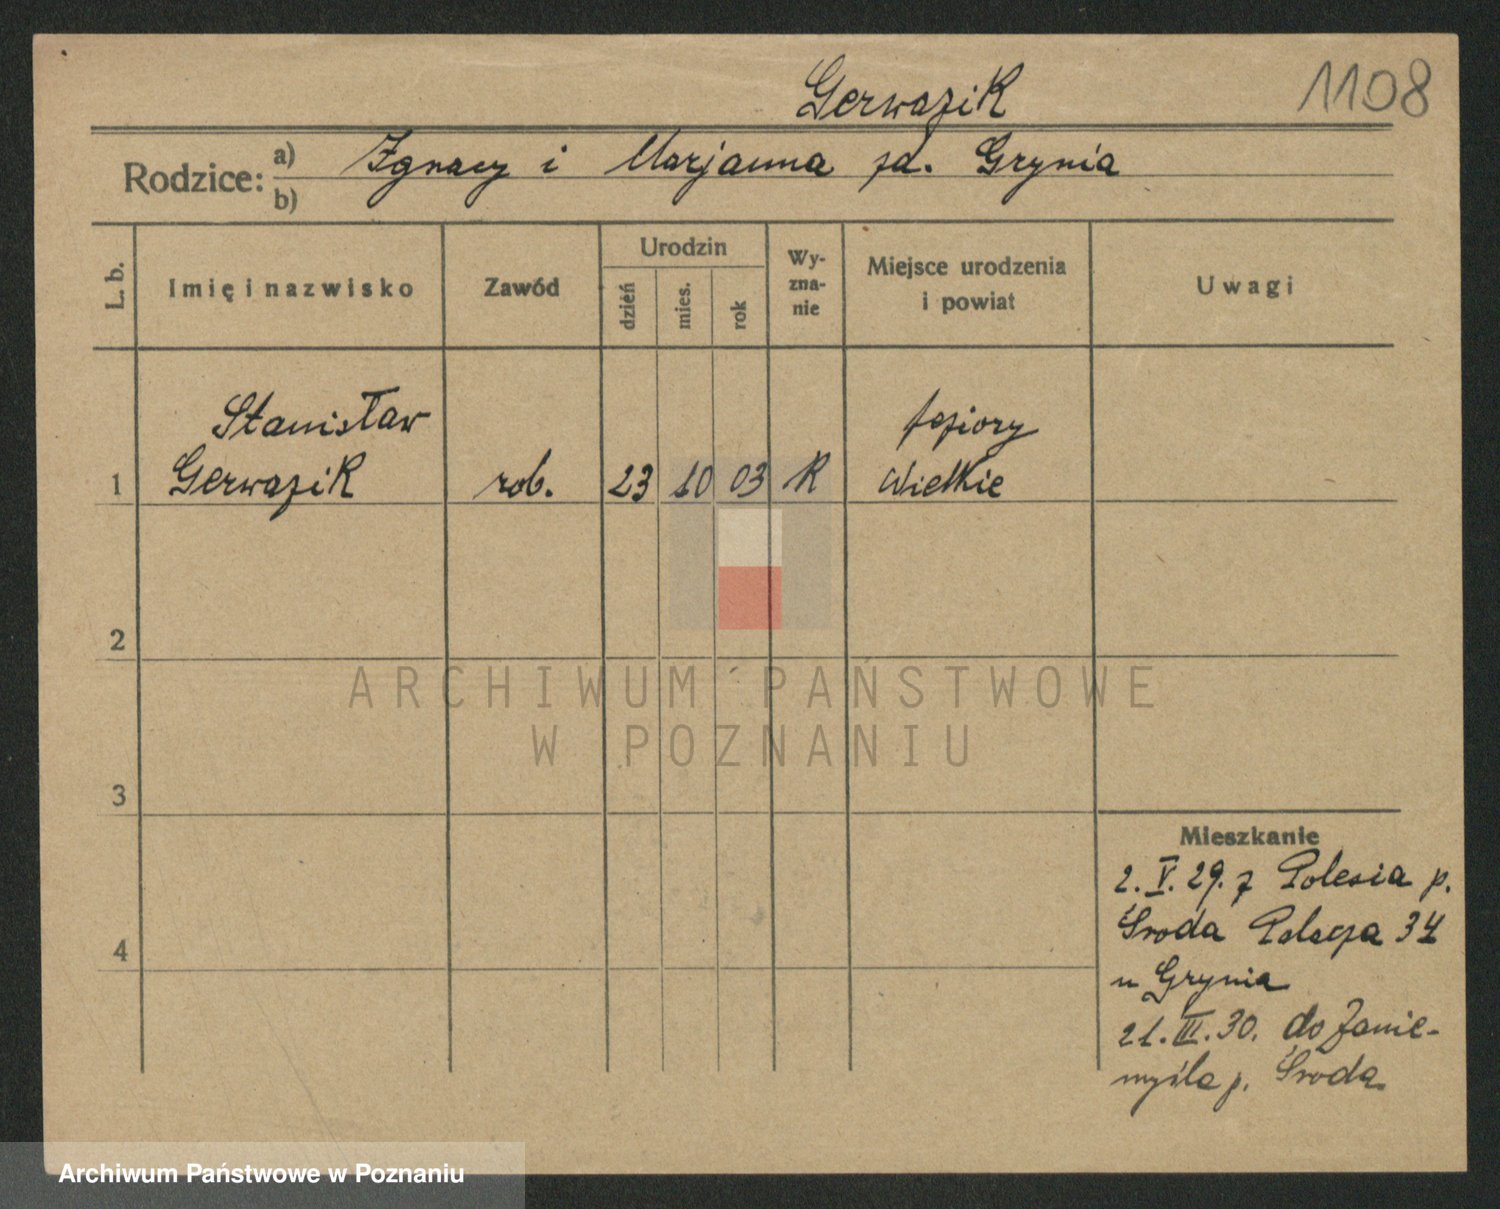 Gerwazik
1108
Rodzice: a) Ignacy i Marjanna zd. Grynia
b)
L. b.
Imię i nazwisko
Zawód
Urodzin
dzień
mies.
rok
Wy-
zna-
nie
Miejsce urodzenia
i powiat
Uwagi
Stanisław
1 Gerwazik rob. 23 10 03 R
Jeziory
Wielkie
2
3
4
Mieszkanie
2. V. 29. z Polesia p.
Środa Polacza 34
u Grynia
21. III. 30. do Zanie-
myśla p. Środa
ARCHIWUM PAŃSTWOWE
W POZNANIU
Archiwum Państwowe w Poznaniu